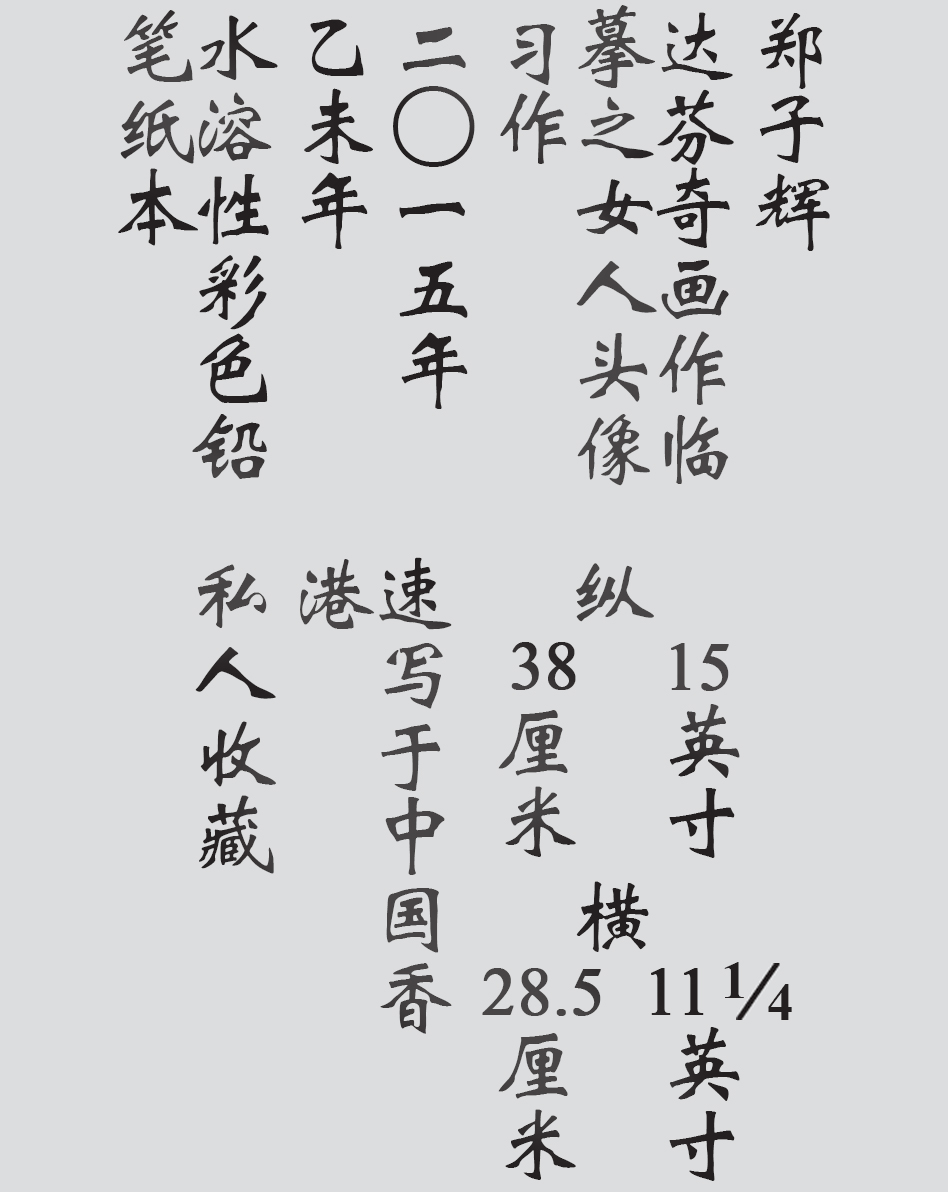 郑子辉
达芬奇画作临
摹之女人头像
习作
二〇一五年
乙未年
水溶性彩色铅
笔纸本
纵
15英寸
38厘米
横
11 1/4英寸
28.5厘米
速写于中国香
港
私人收藏